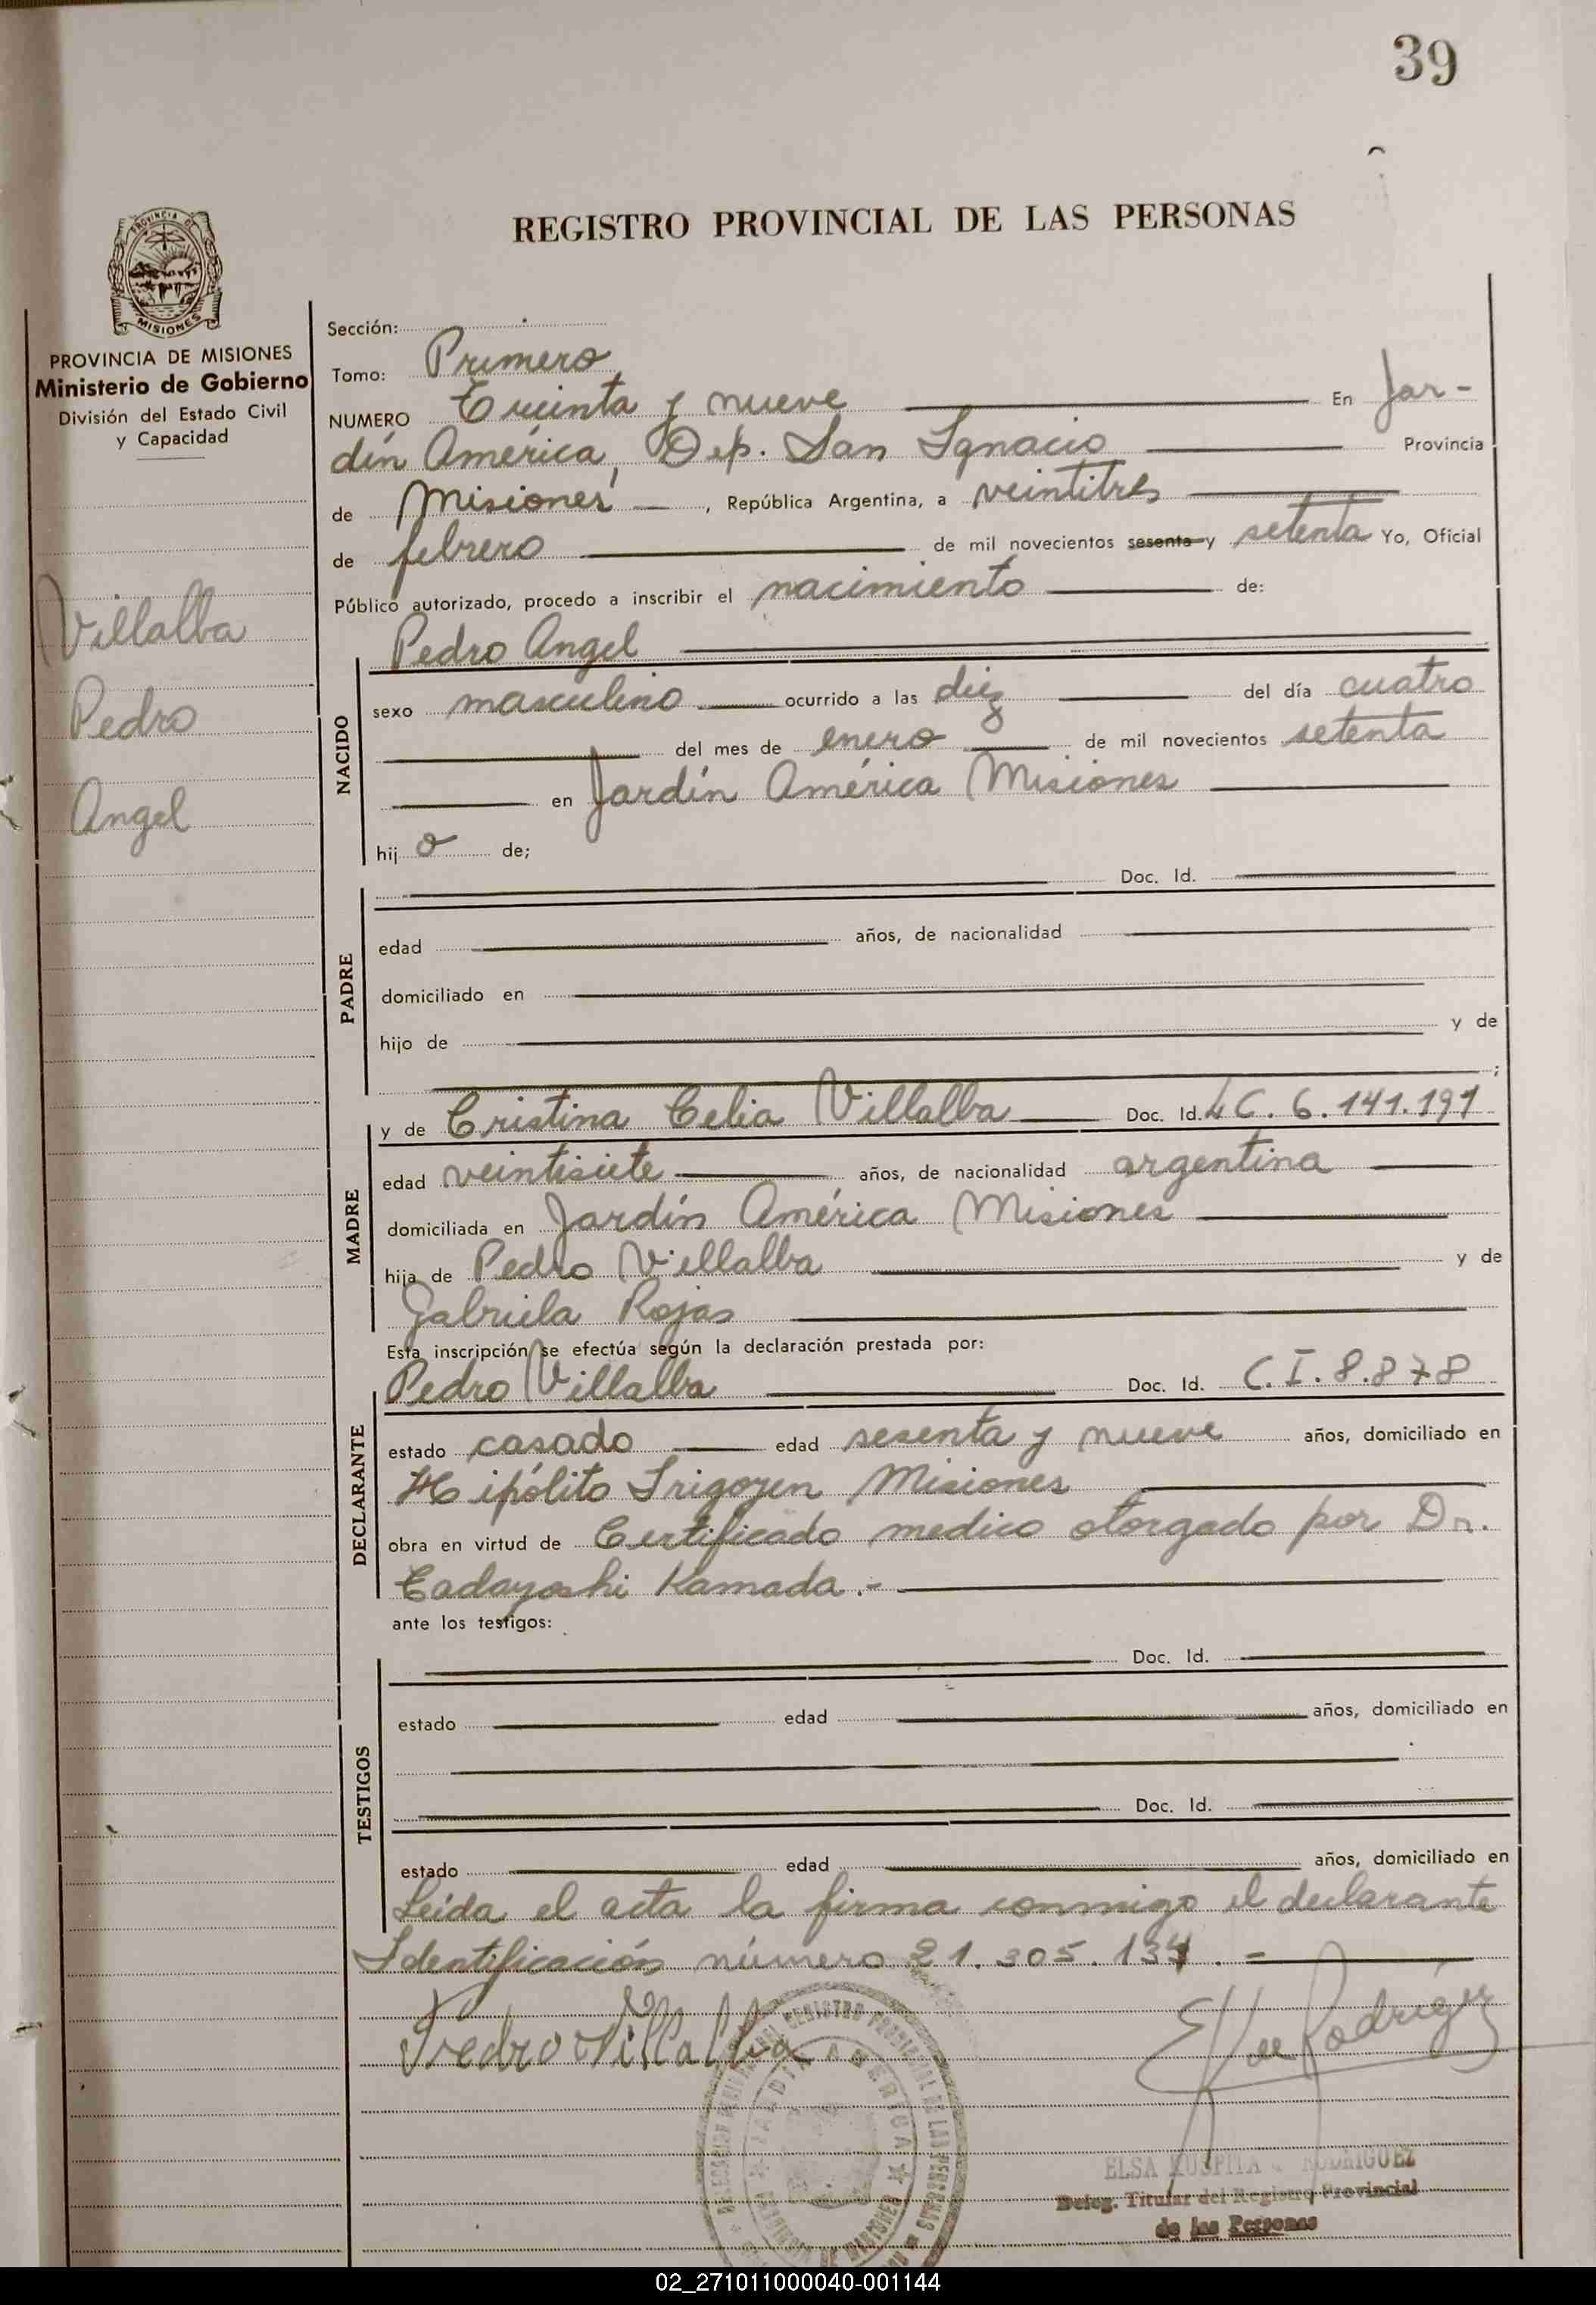 39
REGISTRO PROVINCIAL DE LAS PERSONAS
PROVINCIA DE
MISIONES
PROVINCIA DE MISIONES
Ministerio de Gobierno
División del Estado Civil
y Capacidad
Villalba
Pedro
Angel
Sección:
Tomo: Primero
NUMERO Treinta y nueve En Jar-
dín América, Dep. San Ignacio Provincia
de Misiones, República Argentina, a veintitres
de febrero de mil novecientos sesenta y setenta Yo, Oficial
Público autorizado, procedo a inscribir el nacimiento de:
Pedro Angel
NACIDO
sexo masculino ocurrido a las diez del día cuatro
del mes de enero de mil novecientos setenta
en Jardín América Misiones
hijo de;
Doc. Id.
PADRE
edad años, de nacionalidad
domiciliado en
hijo de y de
;
y de Cristina Celia Villalba Doc. Id. L C. 6.141.191
MADRE
edad veintisiete años, de nacionalidad argentina
domiciliada en Jardín América Misiones
hija de Pedro Villalba y de
Gabriela Rojas
Esta inscripción se efectúa según la declaración prestada por:
Pedro Villalba Doc. Id. C.I.8.878
DECLARANTE
estado casado edad sesenta y nueve años, domiciliado en
Hipólito Irigoyen Misiones
obra en virtud de Certificado medico otorgado por Dr.
Tadayoshi Kamada.-
ante los testigos:
Doc. Id.
TESTIGOS
estado edad años, domiciliado en
Doc. Id.
estado edad años, domiciliado en
Leída el acta la firma conmigo el declarante
Identificación número 21.305.134.=
Pedro Villalba
Rodríguez
ELSA RODRIGUEZ
Deleg. Titular del Registro Provincial
de las Personas
02_271011000040-001144